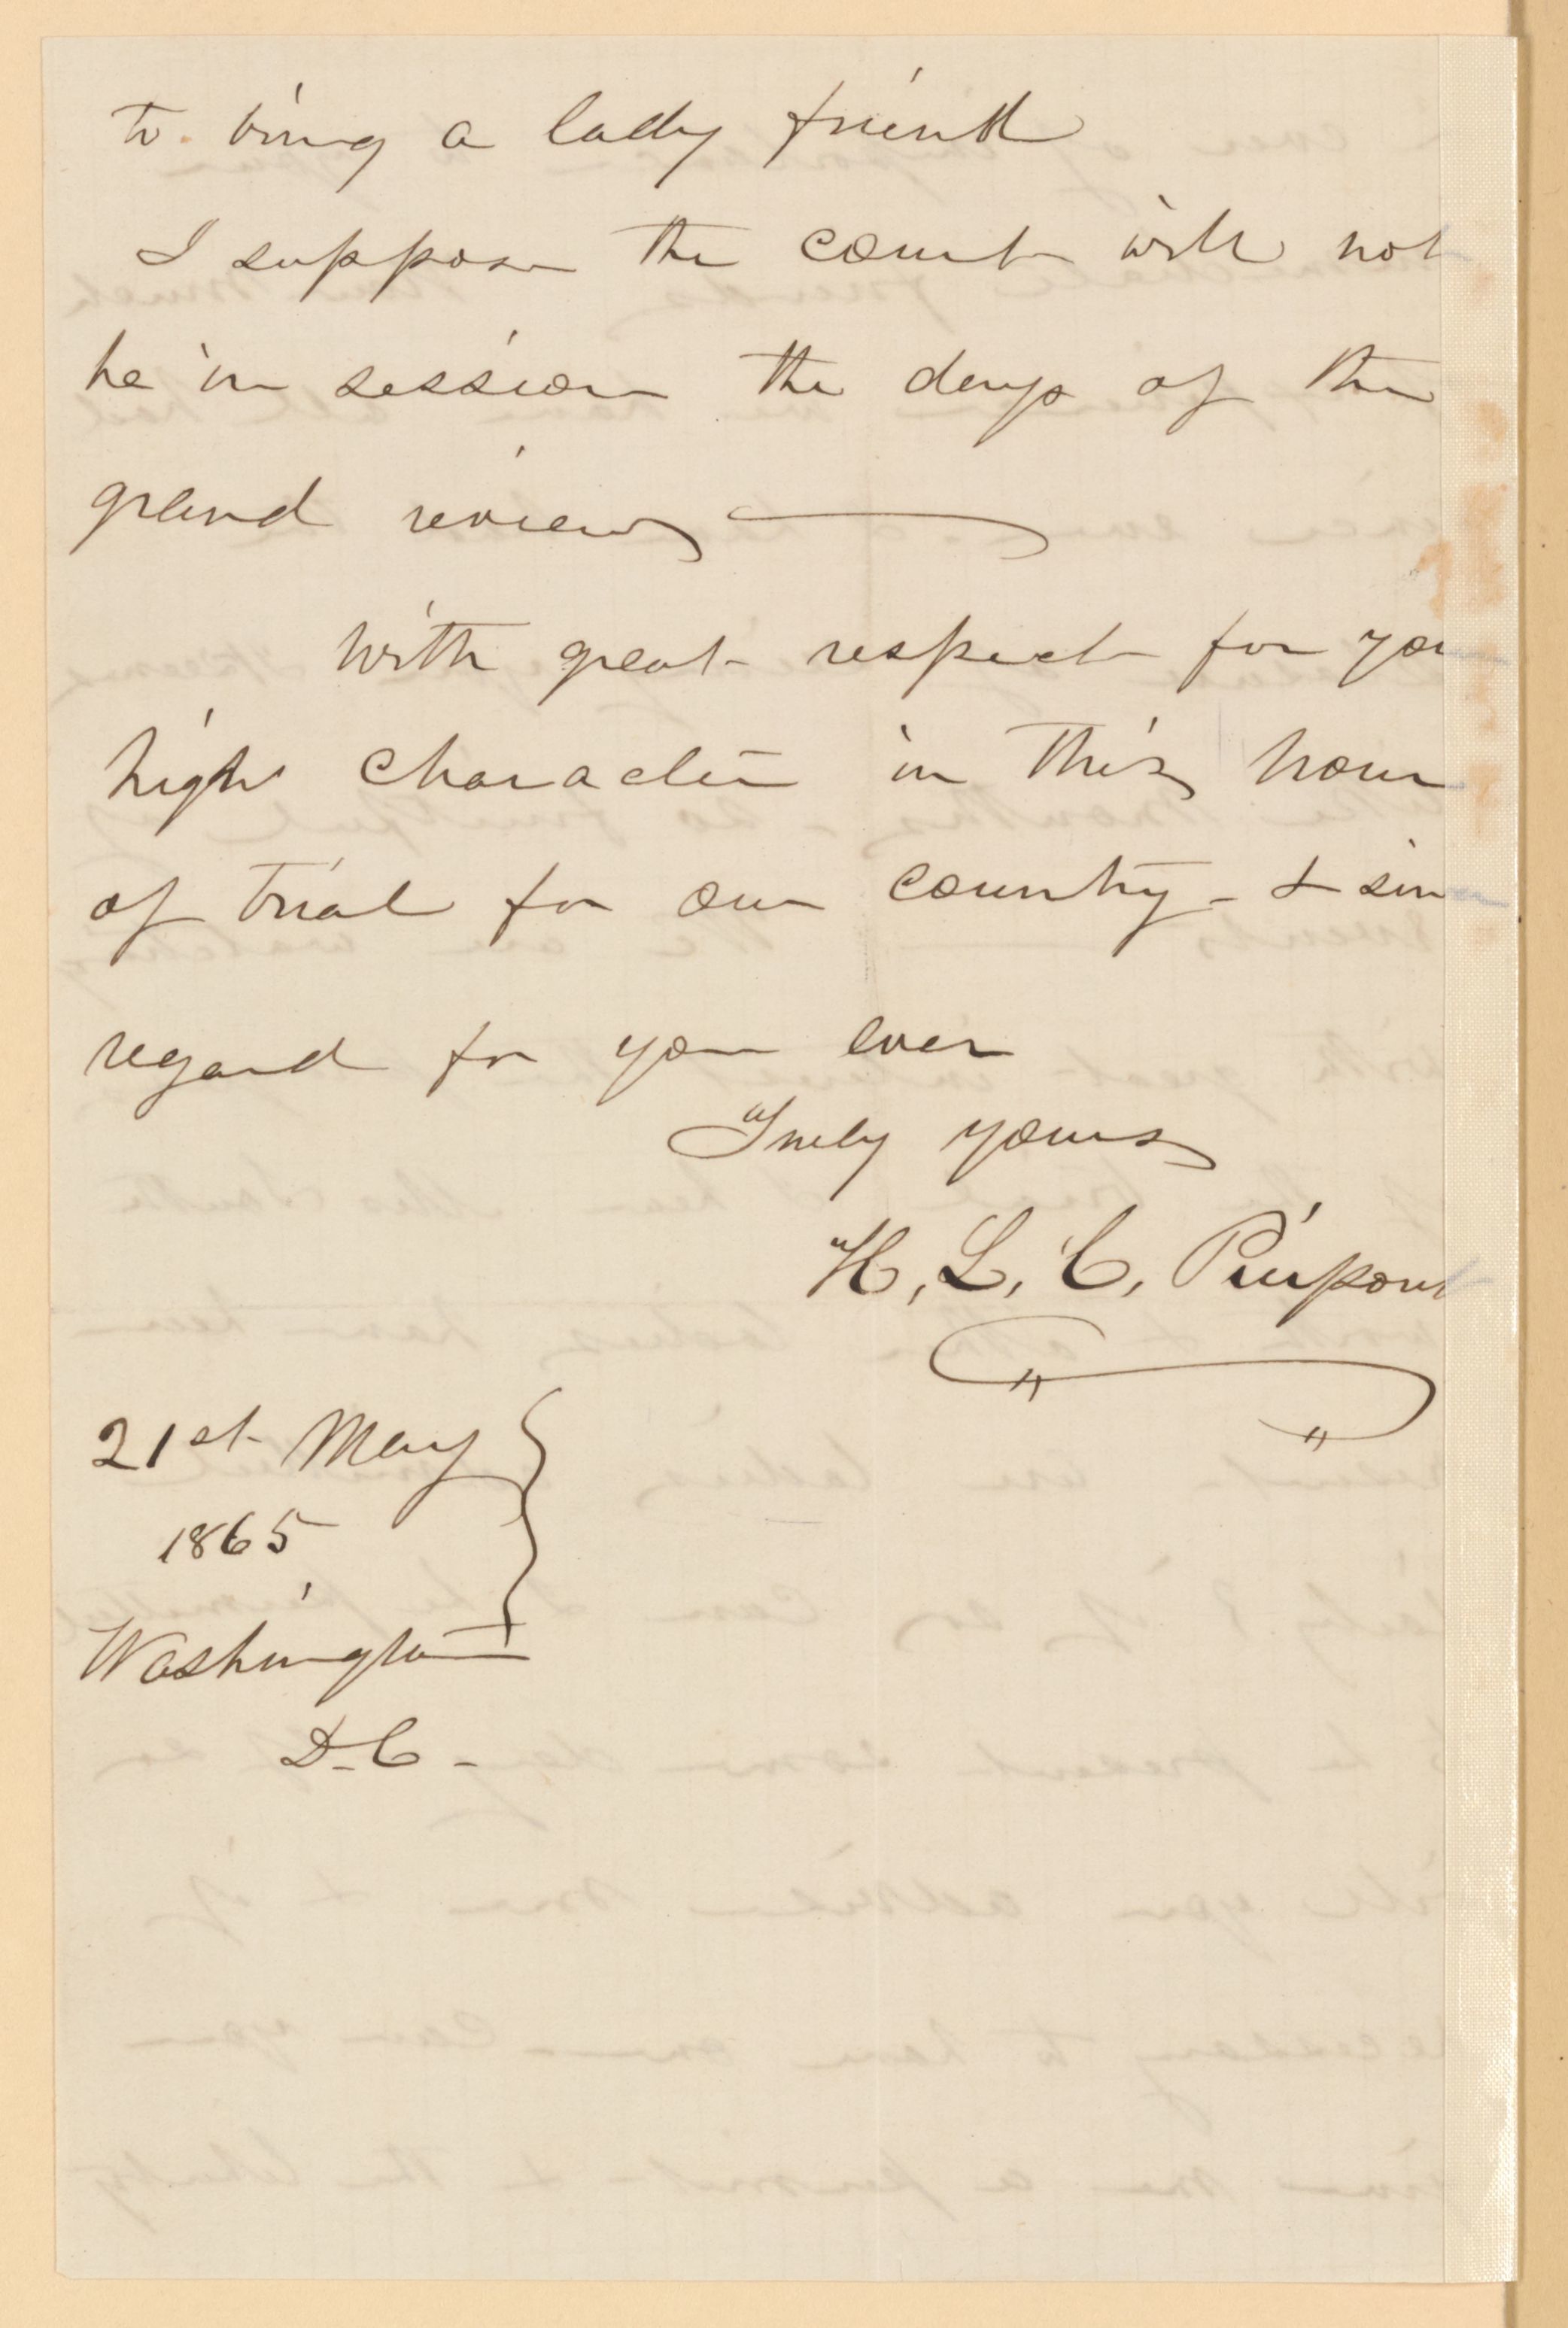 to bring a lady friend
I suppose the court will not
be in session the days of the
grand review
With great respect for you
high character in this hour
of trial for our country - & sin
regard for you ever
Truly yours
H. L. C. Pierpont
21st May
1865
Washington
D. C -